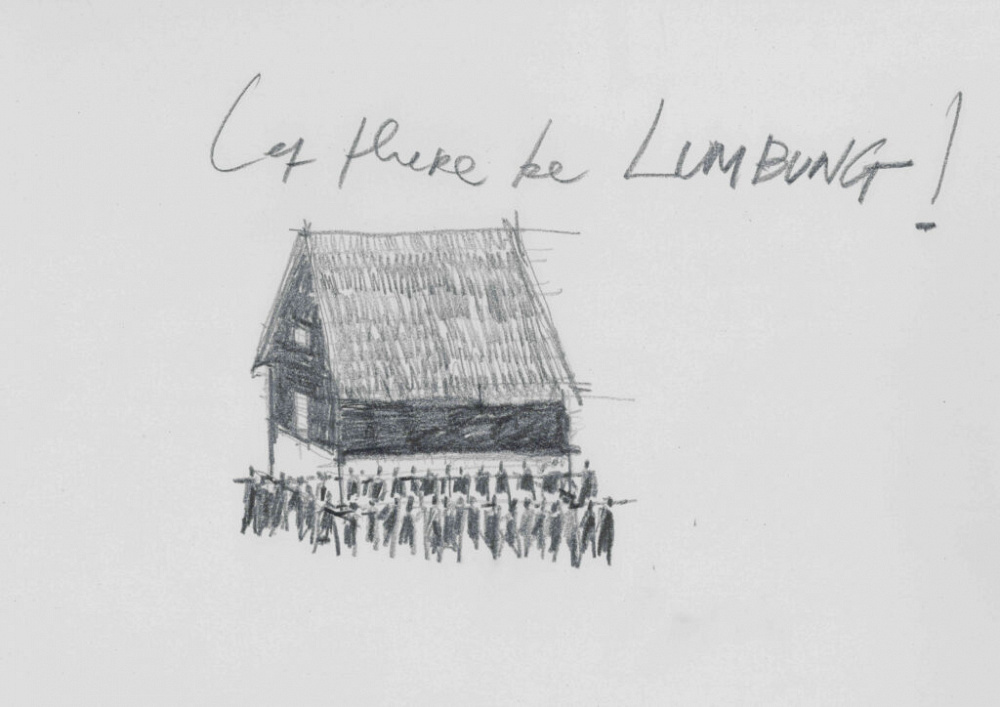 Let there be LUMBUNG!